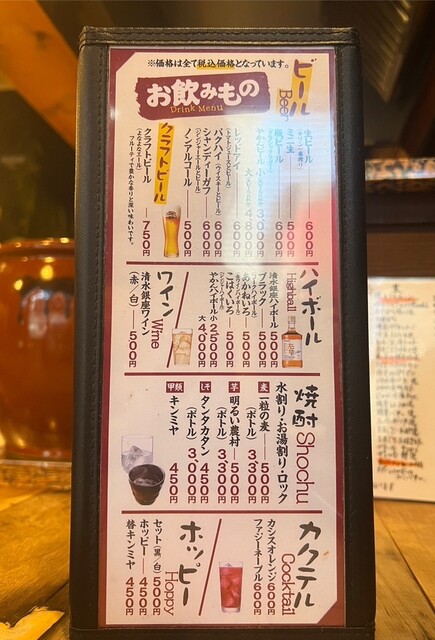 ※価格は全て税込価格となっています。
お飲みもの
Drink Menu
ビール
Beer
生ビール 600円
ミニ生 500円
瓶ビール 600円
レッドアイ 600円
(トマトジュースとビール)
バクハイ 600円
(ウイスキーとビール)
シャンディーガフ 600円
(ジンジャーエールとビール)
ノンアルコール 500円
クラフトビール
クラフトビール 750円
(よなよなエール)
フルーティで豊かな香りと深い味わいです。
ハイボール
Highball
清水銀座ハイボール 500円
ブラック 500円
あかねいろ 500円
こはくいろ 500円
やかんハイボール 小 2,500円
大 4,000円
ワイン
Wine
清水銀座ワイン
(赤/白) 500円
焼酎
Shochu
水割り・お湯割り・ロック
麦 一粒の麦 500円
(ボトル) 3,300円
芋 明るい農村 500円
(ボトル) 3,300円
しそ タンタカタン 450円
(ボトル) 3,000円
甲類 キンミヤ 450円
カクテル
Cocktail
カシスオレンジ 600円
ファジーネーブル 600円
ホッピー
Hoppy
セット(黒/白) 500円
ホッピー 450円
替キンミヤ 450円